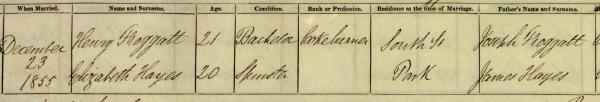 When Married. Name and Surname. Age. Condition. Rank or Profession. Residence at the time of Marriage. Father's Name and Surname.
December Henry Froggatt 21 Bachelor Cokeburner South St Joseph Froggatt
23
1855 Elizabeth Hayes 20 Spinster Park James Hayes